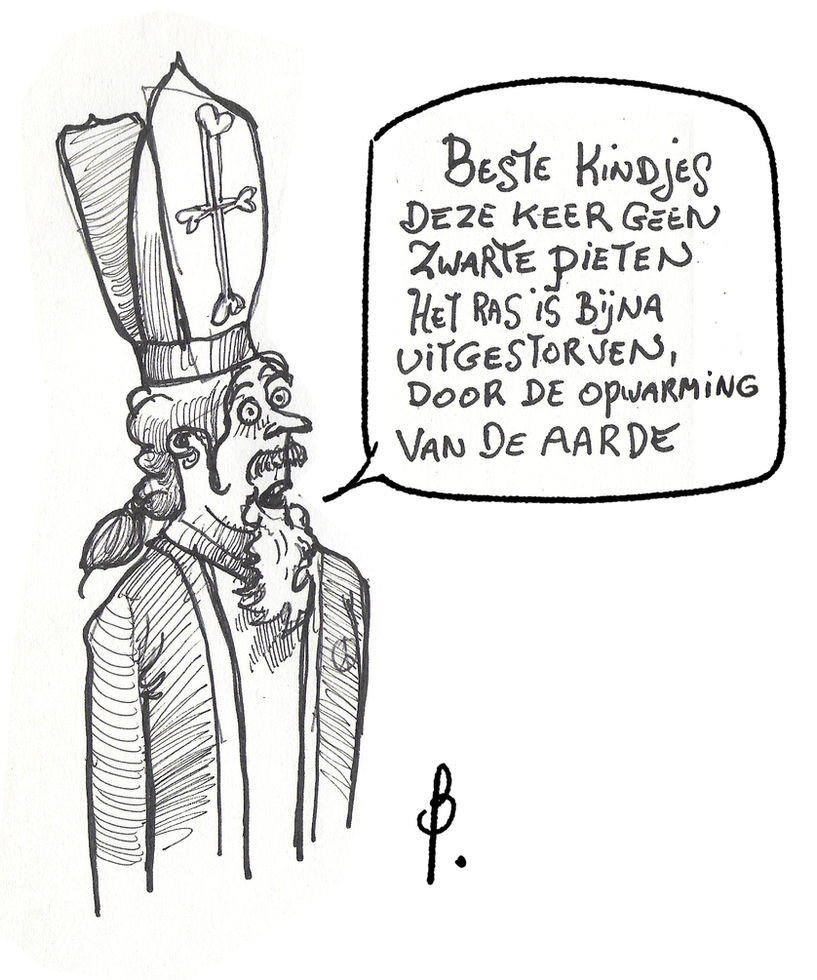 BESTE KINDJES
DEZE KEER GEEN
ZWARTE PIETEN
HET RAS IS BIJNA
UITGESTORVEN,
DOOR DE OPWARMING
VAN DE AARDE
B.